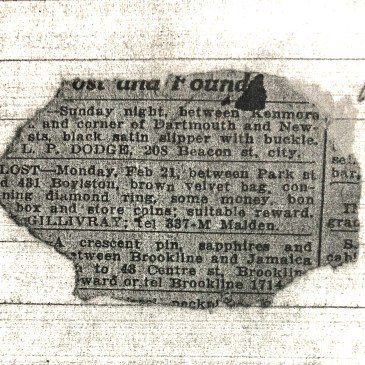 ost and Found
—Sunday night, between Kenmore
and corner of Dartmouth and New-
sts. black satin slipper with buckle.
L. P. DODGE, 208 Beacon st, city.
LOST—Monday, Feb 21, between Park st
d 481 Boylston, brown velvet bag, con-
ning diamond ring, some money, bon
box and store coins; suitable reward.
GILLIVRAY; tel 337-M Malden.
A crescent pin, sapphires and
etween Brookline and Jamaica
to 43 Centre st, Brookline
ward or tel Brookline 1714